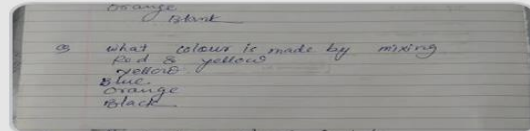 Orange
Blank
Q what colour is made by mixing
Red & yellow
yellow
Blue
Orange
Black